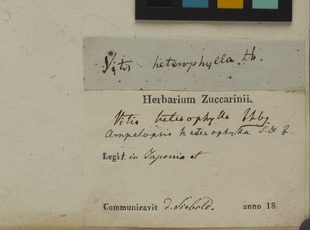 Vitis heterophylla. Hb.
Herbarium Zuccarinii.
Vitis heterophylla Thbg
Ampelopsis heterophylla S. & Z.
Legit in Japonia et
Communicavit d. Siebold. anno 18